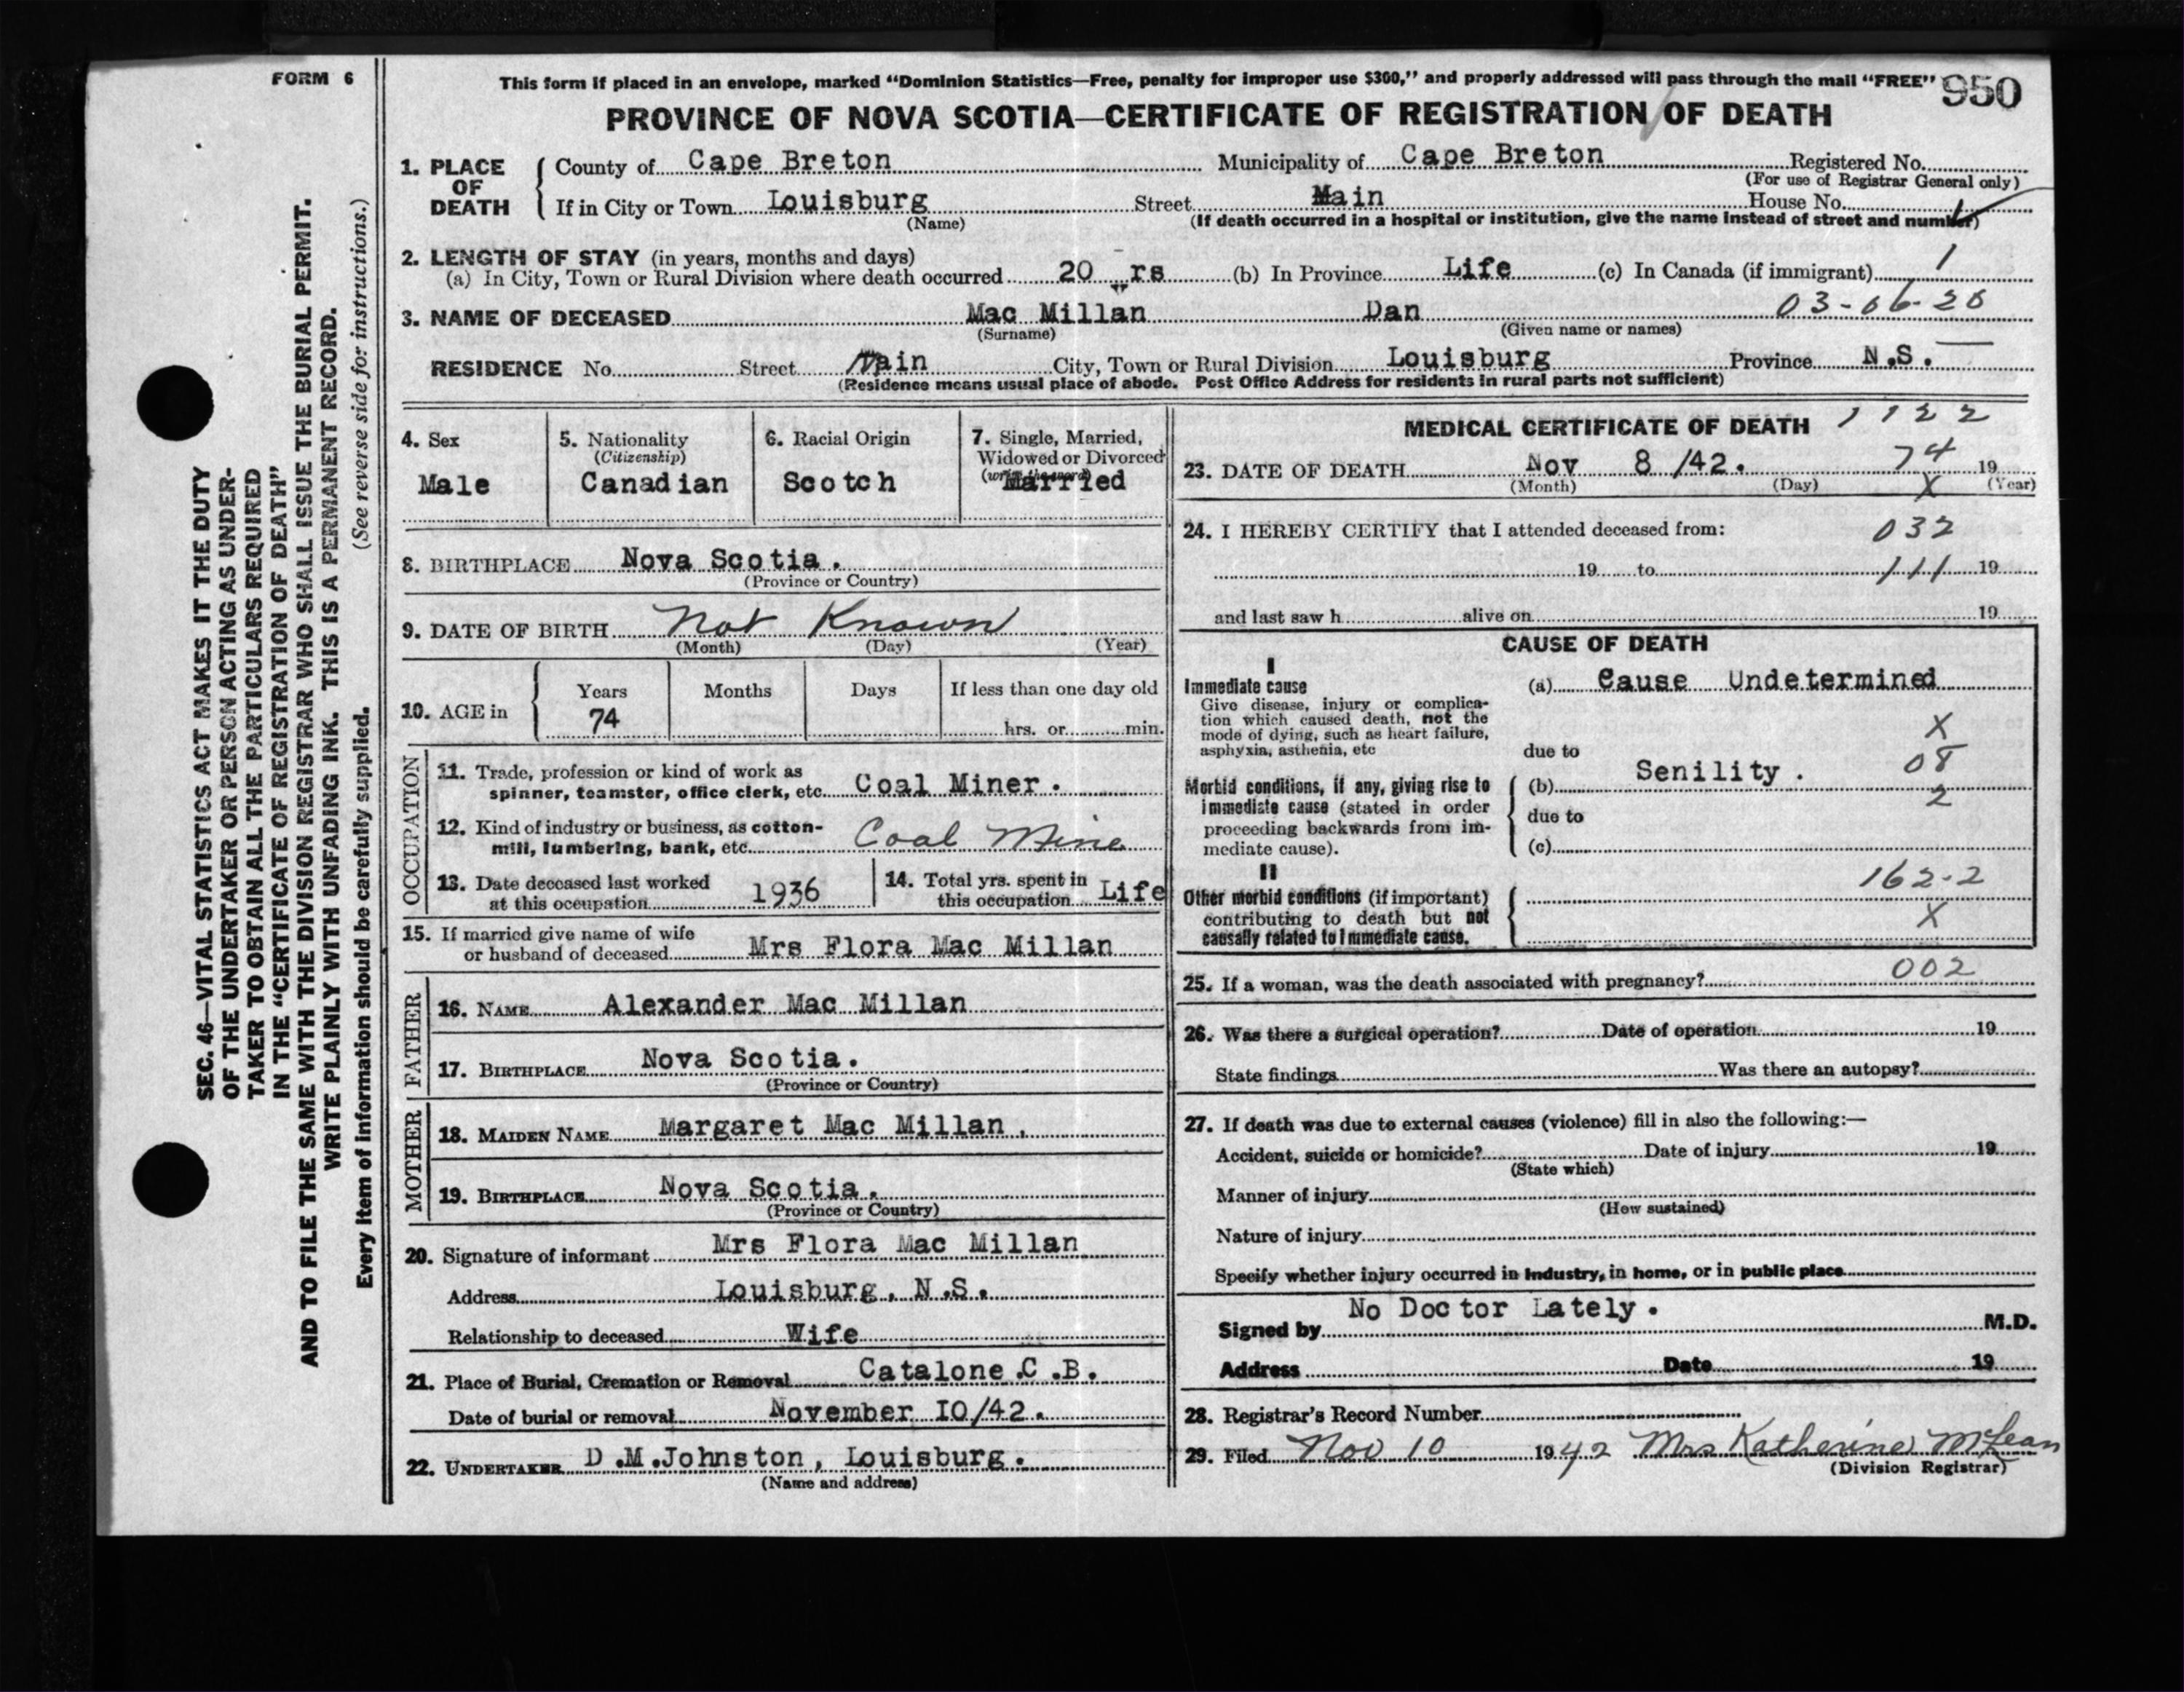 FORM 6
This form if placed in an envelope, marked “Dominion Statistics—Free, penalty for improper use $300,” and properly addressed will pass through the mail “FREE” 950
PROVINCE OF NOVA SCOTIA—CERTIFICATE OF REGISTRATION OF DEATH
1. PLACE OF DEATH
County of Cape Breton Municipality of Cape Breton Registered No.
(For use of Registrar General only)
If in City or Town Louisburg Street Main House No.
(Name) (If death occurred in a hospital or institution, give the name instead of street and number)
2. LENGTH OF STAY (in years, months and days)
(a) In City, Town or Rural Division where death occurred 20 yrs (b) In Province Life (c) In Canada (if immigrant) 1
3. NAME OF DECEASED Mac Millan Dan 03-06-20
(Surname) (Given name or names)
RESIDENCE No. Street Main City, Town or Rural Division Louisburg Province N.S.
(Residence means usual place of abode. Post Office Address for residents in rural parts not sufficient)
4. Sex
Male
5. Nationality
(Citizenship)
Canadian
6. Racial Origin
Scotch
7. Single, Married,
Widowed or Divorced
(write the word)
Married
8. BIRTHPLACE Nova Scotia.
(Province or Country)
9. DATE OF BIRTH Not Known
(Month) (Day) (Year)
10. AGE in
Years Months Days If less than one day old
74 hrs. or min.
OCCUPATION
11. Trade, profession or kind of work as
spinner, teamster, office clerk, etc. Coal Miner.
12. Kind of industry or business, as cotton-
mill, lumbering, bank, etc. Coal Mine
13. Date deceased last worked
at this occupation 1936
14. Total yrs. spent in
this occupation Life
15. If married give name of wife
or husband of deceased Mrs Flora Mac Millan
FATHER
16. NAME Alexander Mac Millan
17. BIRTHPLACE Nova Scotia.
(Province or Country)
MOTHER
18. MAIDEN NAME Margaret Mac Millan.
19. BIRTHPLACE Nova Scotia.
(Province or Country)
20. Signature of informant Mrs Flora Mac Millan
Address Louisburg, N.S.
Relationship to deceased Wife
21. Place of Burial, Cremation or Removal Catalone .C .B.
Date of burial or removal November IO/42.
22. UNDERTAKER D .M.Johnston, Louisburg.
(Name and address)
MEDICAL CERTIFICATE OF DEATH 1122
23. DATE OF DEATH Nov 8 /42. 74 19
(Month) (Day) X (Year)
24. I HEREBY CERTIFY that I attended deceased from: 032
19 to 111 19
and last saw h alive on 19
CAUSE OF DEATH
I
Immediate cause
Give disease, injury or complica-
tion which caused death, not the
mode of dying, such as heart failure,
asphyxia, asthenia, etc
(a) Cause Undetermined
X
due to 08
Morbid conditions, if any, giving rise to
immediate cause (stated in order
proceeding backwards from im-
mediate cause).
(b) Senility.
2
due to
(c)
II
Other morbid conditions (if important)
contributing to death but not
causally related to immediate cause.
162-2
X
25. If a woman, was the death associated with pregnancy? 002
26. Was there a surgical operation? Date of operation 19
State findings Was there an autopsy?
27. If death was due to external causes (violence) fill in also the following:—
Accident, suicide or homicide? Date of injury 19
(State which)
Manner of injury
(How sustained)
Nature of injury
Specify whether injury occurred in industry, in home, or in public place
No Doctor Lately.
Signed by M.D.
Address Date 19
28. Registrar's Record Number
29. Filed Nov 10 1942 Mrs Katherine McLean
(Division Registrar)
SEC. 46—VITAL STATISTICS ACT MAKES IT THE DUTY
OF THE UNDERTAKER OR PERSON ACTING AS UNDER-
TAKER TO OBTAIN ALL THE PARTICULARS REQUIRED
IN THE “CERTIFICATE OF REGISTRATION OF DEATH”
AND TO FILE THE SAME WITH THE DIVISION REGISTRAR WHO SHALL ISSUE THE BURIAL PERMIT.
WRITE PLAINLY WITH UNFADING INK. THIS IS A PERMANENT RECORD.
Every item of information should be carefully supplied. (See reverse side for instructions.)